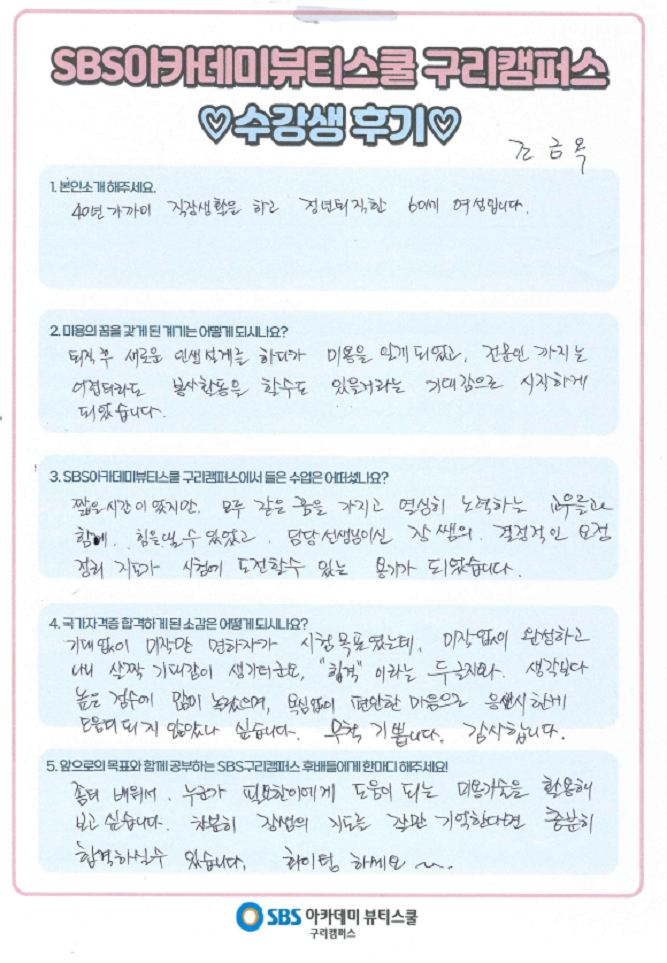 SBS아카데미뷰티스쿨 구리캠퍼스
♡수강생 후기♡
조금옥
1. 본인소개 해주세요.
40년 가까이 직장생활을 하고 정년퇴직한 60대 여성입니다.
2. 미용의 꿈을 갖게 된 계기는 어떻게 되시나요?
퇴직 후 새로운 인생설계를 하다가 미용을 알게 되었고, 전문인 까지는
어렵더라도 봉사활동은 할수도 있을거라는 기대감으로 시작하게
되었습니다.
3. SBS아카데미뷰티스쿨 구리캠퍼스에서 들은 수업은 어떠셨나요?
짧은시간이 였지만. 모두 같은 꿈을 가지고 열심히 노력하는 교우들과
함께. 힘을낼수 있었고. 담당선생님이신 장쌤의. 결정적인 요점
정리 지도가 시험에 도전할수 있는 용기가 되었습니다.
4. 국가자격증 합격하게 된 소감은 어떻게 되시나요?
기대없이 미작만 면하자가 시험목표였는데, 미작없이 완성하고
나니 살짝 기대감이 생기더군요. "합격" 이라는 두글자와. 생각보다
높은 점수에 많이 놀랐으며, 욕심없이 편안한 마음으로 응시한게
도움이 되지 않았나 싶습니다. 무척 기쁩니다. 감사합니다.
5. 앞으로의 목표와 함께 공부하는 SBS구리캠퍼스 후배들에게 한마디 해주세요!
좀더 배워서. 누군가 필요한이에게 도움이 되는 미용기술을 활용해
보고 싶습니다. 차분히 장쌤의 지도를 잘만 기억한다면 충분히
합격하실수 있습니다. 화이팅 하세요 ~.
SBS 아카데미 뷰티스쿨
구리캠퍼스